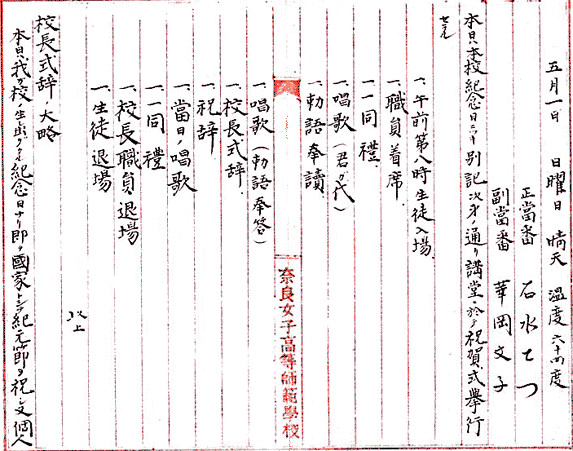 五月一日 日曜日 晴天 温度六十四度
正當番 石水てつ
副當番 華岡文子
本日ハ本校紀念日ニツキ別記次第ノ通リ講堂ニ於テ祝賀式擧行
セラル
一、午前第八時生徒入場
一、職員着席
一、一同禮
一、唱歌(君が代)
一、勅語奉讀
奈良女子高等師範學校
一、唱歌(勅語奉答)
一、校長式辞
一、祝辞
一、當日ノ唱歌
一、一同禮
一、校長職員退場
一、生徒退場
以上
校長式辞ノ大略
本日ハ我ガ校ノ生出タル紀念日ナリ即チ國家トシテ紀元節ヲ祝シ又個人